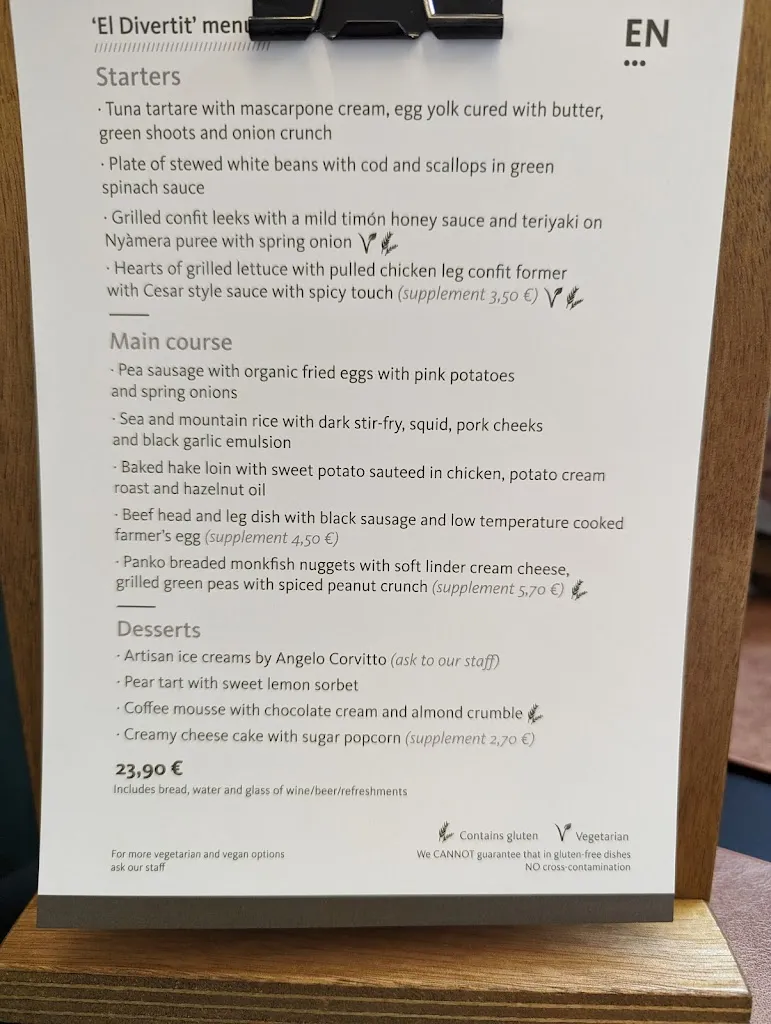 'El Divertit' menu
EN
Starters
· Tuna tartare with mascarpone cream, egg yolk cured with butter,
green shoots and onion crunch
· Plate of stewed white beans with cod and scallops in green
spinach sauce
· Grilled confit leeks with a mild timón honey sauce and teriyaki on
Nyàmera puree with spring onion
· Hearts of grilled lettuce with pulled chicken leg confit former
with Cesar style sauce with spicy touch (supplement 3,50 €)
Main course
· Pea sausage with organic fried eggs with pink potatoes
and spring onions
· Sea and mountain rice with dark stir-fry, squid, pork cheeks
and black garlic emulsion
· Baked hake loin with sweet potato sauteed in chicken, potato cream
roast and hazelnut oil
· Beef head and leg dish with black sausage and low temperature cooked
farmer's egg (supplement 4,50 €)
· Panko breaded monkfish nuggets with soft linder cream cheese,
grilled green peas with spiced peanut crunch (supplement 5,70 €)
Desserts
· Artisan ice creams by Angelo Corvitto (ask to our staff)
· Pear tart with sweet lemon sorbet
· Coffee mousse with chocolate cream and almond crumble
· Creamy cheese cake with sugar popcorn (supplement 2,70 €)
23,90 €
Includes bread, water and glass of wine/beer/refreshments
Contains gluten Vegetarian
For more vegetarian and vegan options
ask our staff
We CANNOT guarantee that in gluten-free dishes
NO cross-contamination